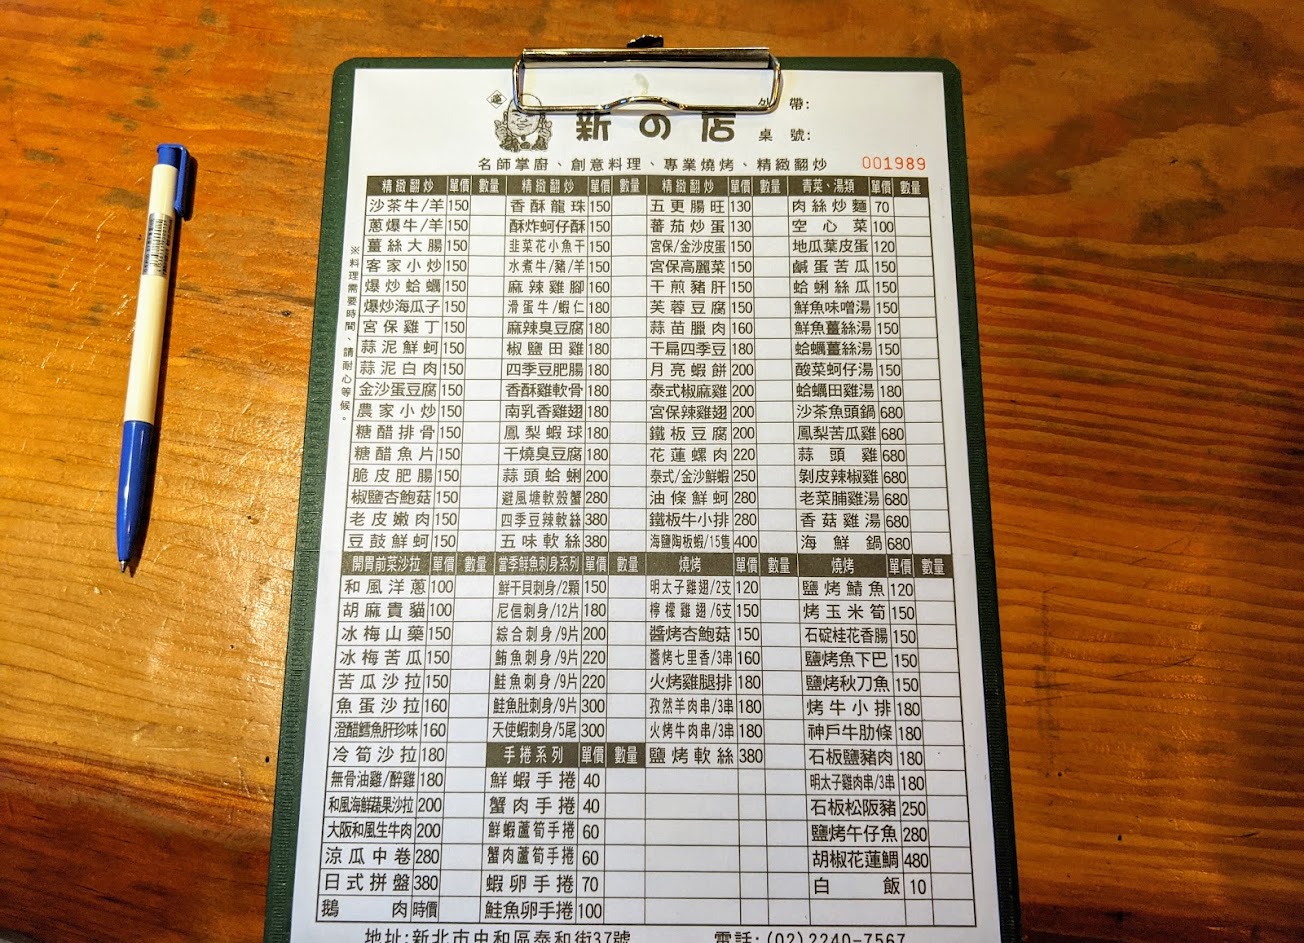 外帶:
新の店
桌號:
名師掌廚、創意料理、專業燒烤、精緻翻炒 001989
※料理需要時間、請耐心等候。
精緻翻炒 單價 數量 精緻翻炒 單價 數量 精緻翻炒 單價 數量 青菜、湯類 單價 數量
沙茶牛/羊 150 香酥龍珠 150 五更腸旺 130 肉絲炒麵 70
蔥爆牛/羊 150 酥炸蚵仔酥 150 蕃茄炒蛋 130 空心菜 100
薑絲大腸 150 韭菜花小魚干 150 宮保/金沙皮蛋 150 地瓜葉皮蛋 120
客家小炒 150 水煮牛/豬/羊 150 宮保高麗菜 150 鹹蛋苦瓜 150
爆炒蛤蠣 150 麻辣雞腳 160 干煎豬肝 150 蛤蜊絲瓜 150
爆炒海瓜子 150 滑蛋牛/蝦仁 180 芙蓉豆腐 150 鮮魚味噌湯 150
宮保雞丁 150 麻辣臭豆腐 180 蒜苗臘肉 160 鮮魚薑絲湯 150
蒜泥鮮蚵 150 椒鹽田雞 180 干扁四季豆 180 蛤蠣薑絲湯 150
蒜泥白肉 150 四季豆肥腸 180 月亮蝦餅 200 酸菜蚵仔湯 150
金沙蛋豆腐 150 香酥雞軟骨 180 泰式椒麻雞 200 蛤蠣田雞湯 180
農家小炒 150 南乳香雞翅 180 宮保辣雞翅 200 沙茶魚頭鍋 680
糖醋排骨 150 鳳梨蝦球 180 鐵板豆腐 200 鳳梨苦瓜雞 680
糖醋魚片 150 干燒臭豆腐 180 花蓮螺肉 220 蒜頭雞 680
脆皮肥腸 150 蒜頭蛤蜊 200 泰式/金沙鮮蝦 250 剝皮辣椒雞 680
椒鹽杏鮑菇 150 避風塘軟殼蟹 280 油條鮮蚵 200 老菜脯雞湯 680
老皮嫩肉 150 四季豆辣軟絲 380 鐵板牛小排 280 香菇雞湯 680
豆鼓鮮蚵 150 五味軟絲 380 海鹽陶板蝦/15隻 400 海鮮鍋 680
開胃前菜沙拉 單價 數量 當季鮮魚刺身系列 單價 數量 燒烤 單價 數量 燒烤 單價 數量
和風洋蔥 100 鮮干貝刺身/2顆 150 明太子雞翅/2支 120 鹽烤鯖魚 120
胡麻貴貓 100 尼信刺身/12片 180 檸檬雞翅/6支 150 烤玉米筍 150
冰梅山藥 150 綜合刺身/9片 200 醬烤杏鮑菇 150 石碇桂花香腸 150
冰梅苦瓜 150 鮪魚刺身/9片 220 醬烤七里香/3串 160 鹽烤魚下巴 150
苦瓜沙拉 150 鮭魚刺身/9片 220 火烤雞腿排 180 鹽烤秋刀魚 150
魚蛋沙拉 160 鮭魚肚刺身/9片 300 孜然羊肉串/3串 180 烤牛小排 180
澄醋鱈魚肝珍味 160 天使蝦刺身/5尾 300 火烤牛肉串/3串 180 神戶牛肋條 180
冷筍沙拉 180 手捲系列 單價 數量 鹽烤軟絲 380 石板鹽豬肉 180
無骨油雞/醉雞 180 鮮蝦手捲 40 明太子雞肉串/3串 180
和風海鮮蔬果沙拉 200 蟹肉手捲 40 石板松阪豬 250
大阪和風生牛肉 200 鮮蝦蘆筍手捲 60 鹽烤午仔魚 280
涼瓜中卷 280 蟹肉蘆筍手捲 60 胡椒花蓮鯛 480
日式拼盤 380 蝦卵手捲 70 白飯 10
鵝肉 時價 鮭魚卵手捲 100
地址:新北市中和區泰和街37號 電話:(02)2240-7567